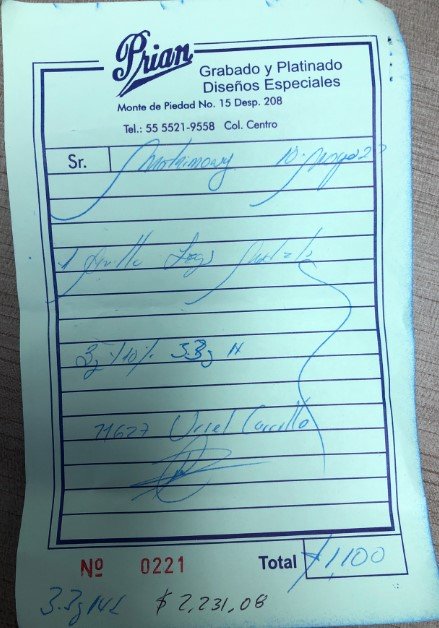 Prian
Grabado y Platinado
Diseños Especiales
Monte de Piedad No. 15 Desp. 208
Tel.: 55 5521-9558 Col. Centro
Sr.
1 Anillo Logo
3g + 10% 3.3g
71627 Uriel
Nº 0221 Total 1,100
3.3g 14k $ 2,231,08